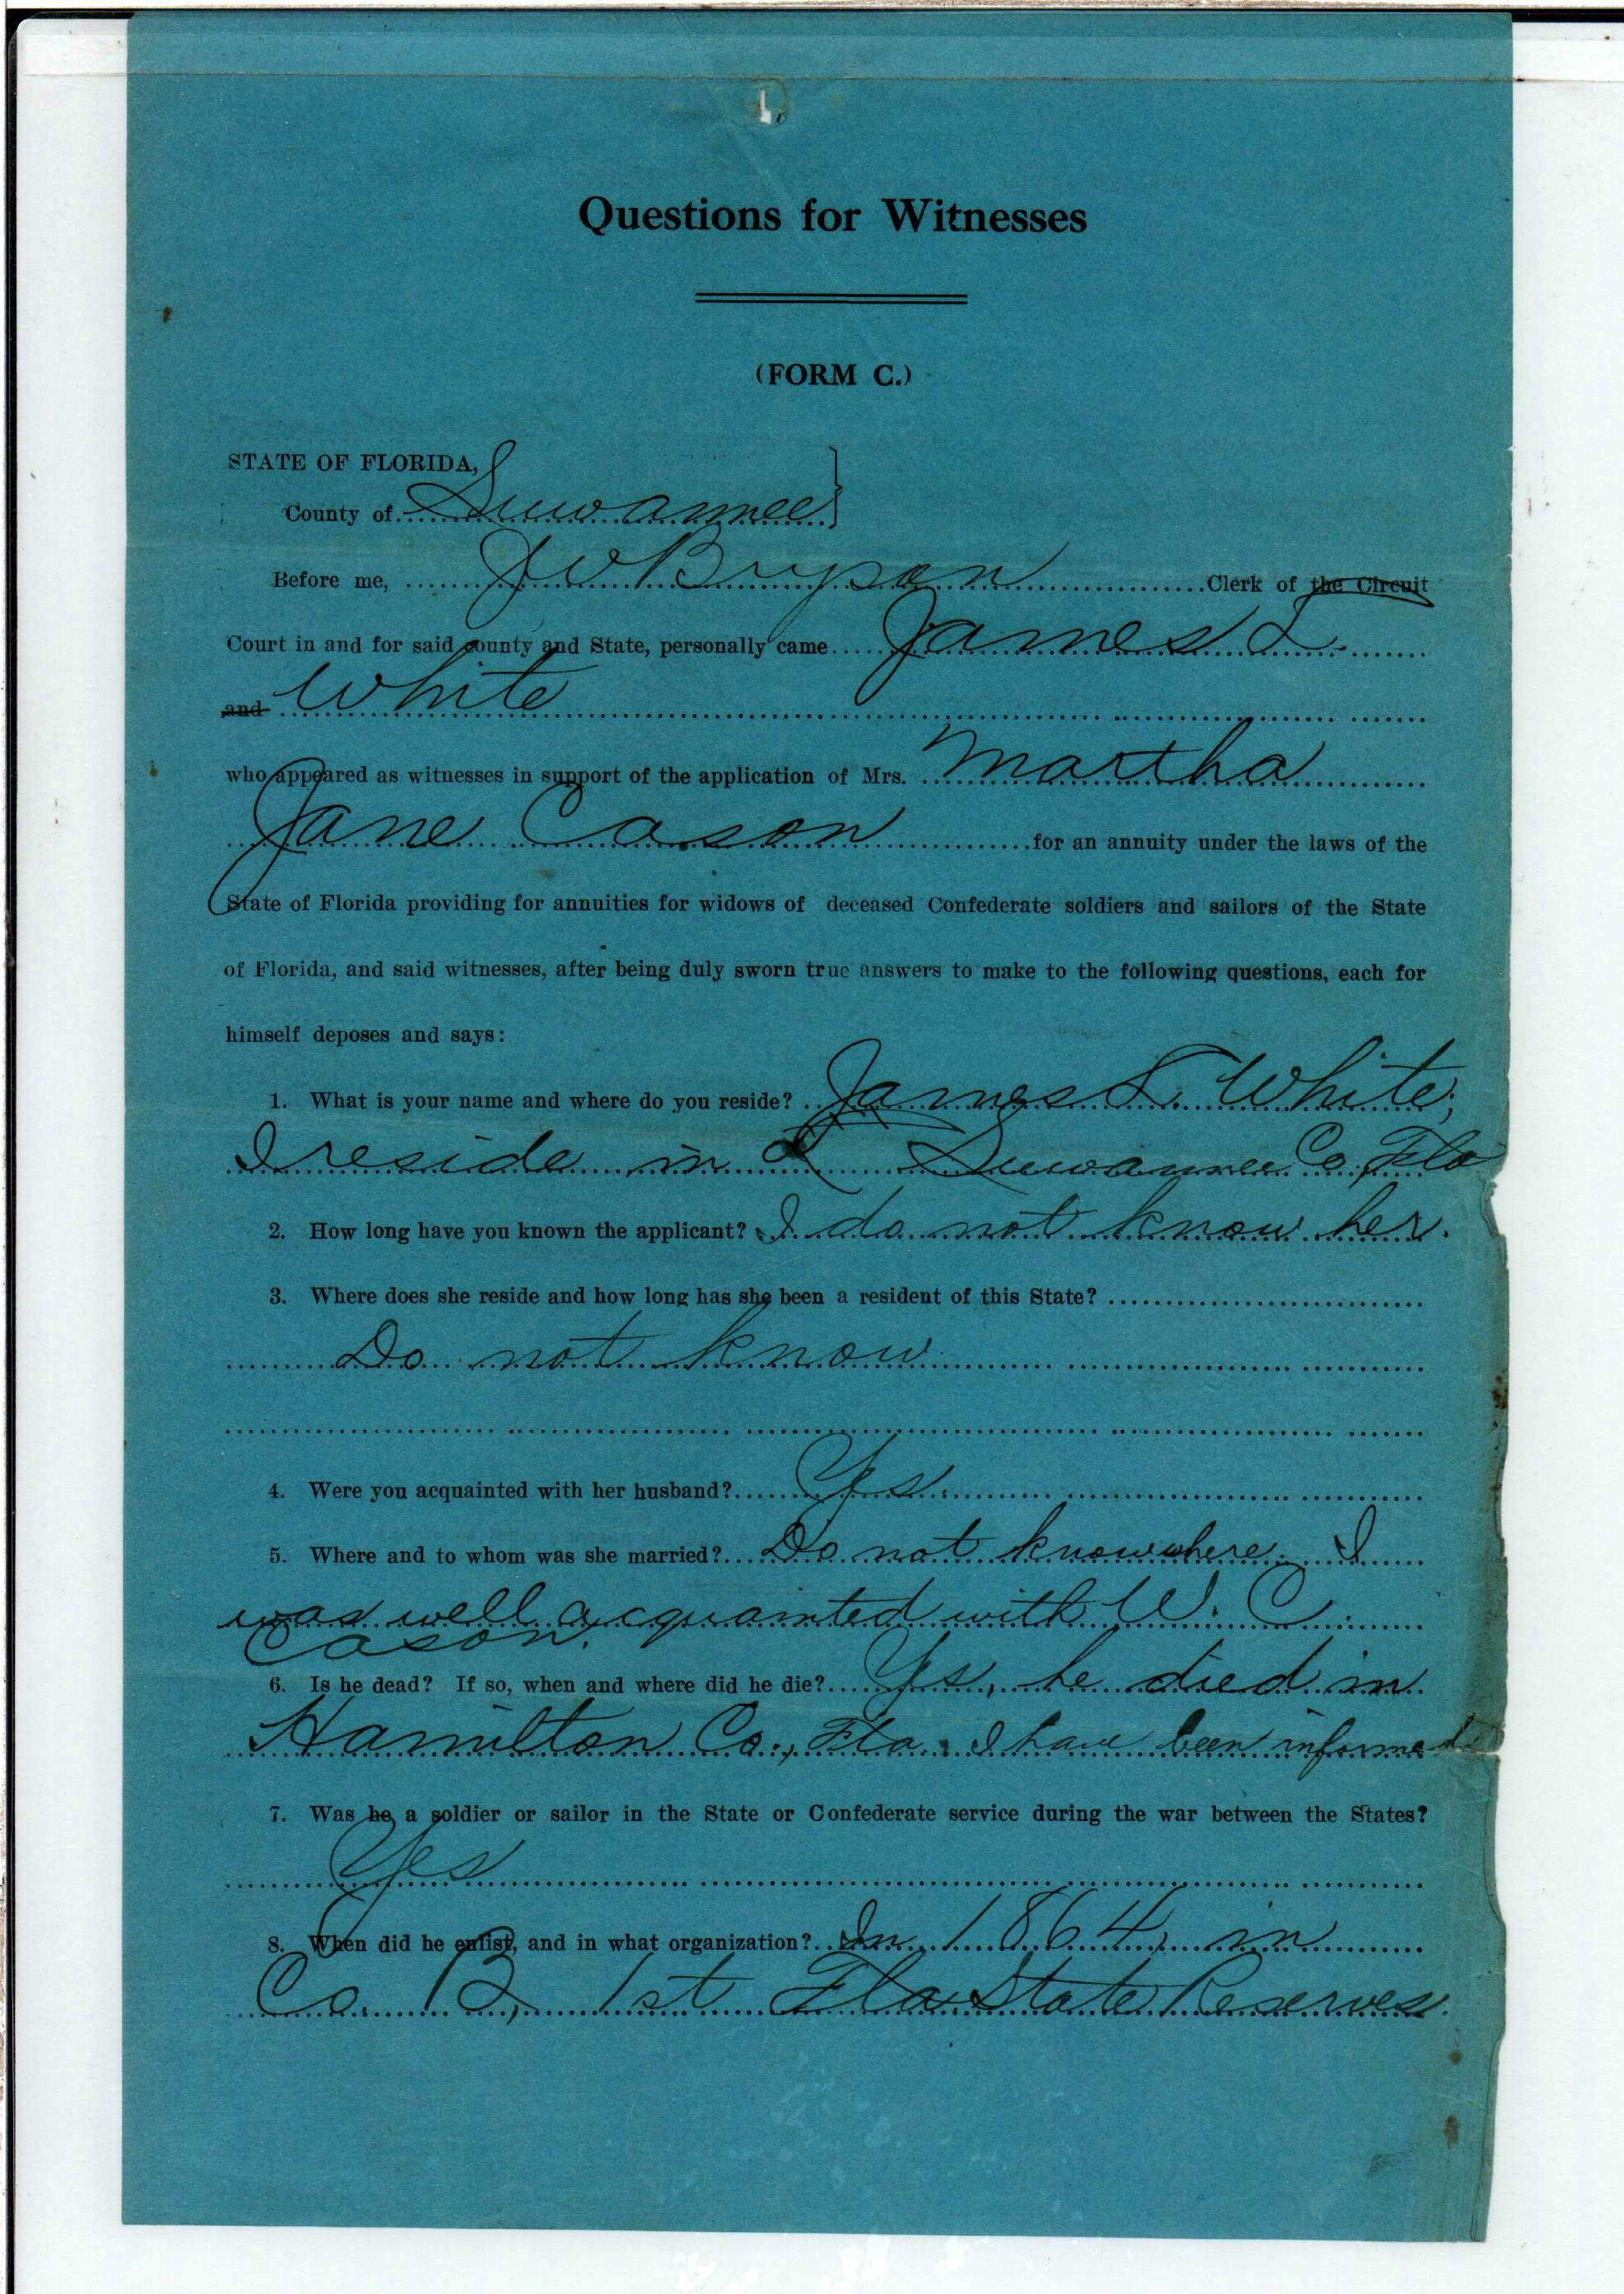 Questions for Witnesses
(FORM C.)
STATE OF FLORIDA,
County of Suwannee
Before me, J W Bryson Clerk of the Circuit
Court in and for said county and State, personally came James L.
and White
who appeared as witnesses in support of the application of Mrs. Martha
Jane Cason for an annuity under the laws of the
State of Florida providing for annuities for widows of deceased Confederate soldiers and sailors of the State
of Florida, and said witnesses, after being duly sworn true answers to make to the following questions, each for
himself deposes and says:
1. What is your name and where do you reside? James L. White;
I reside in Suwannee Co. Fla
2. How long have you known the applicant? I do not know her.
3. Where does she reside and how long has she been a resident of this State?
Do not know
4. Were you acquainted with her husband? Yes.
5. Where and to whom was she married? Do not know where. I
was well acquainted with W. C.
Cason.
6. Is he dead? If so, when and where did he die? Yes, he died in
Hamilton Co., Fla. I have been informed
7. Was he a soldier or sailor in the State or Confederate service during the war between the States?
Yes
8. When did he enlist, and in what organization? In 1864, in
Co. B, 1st Fla State Reserves.